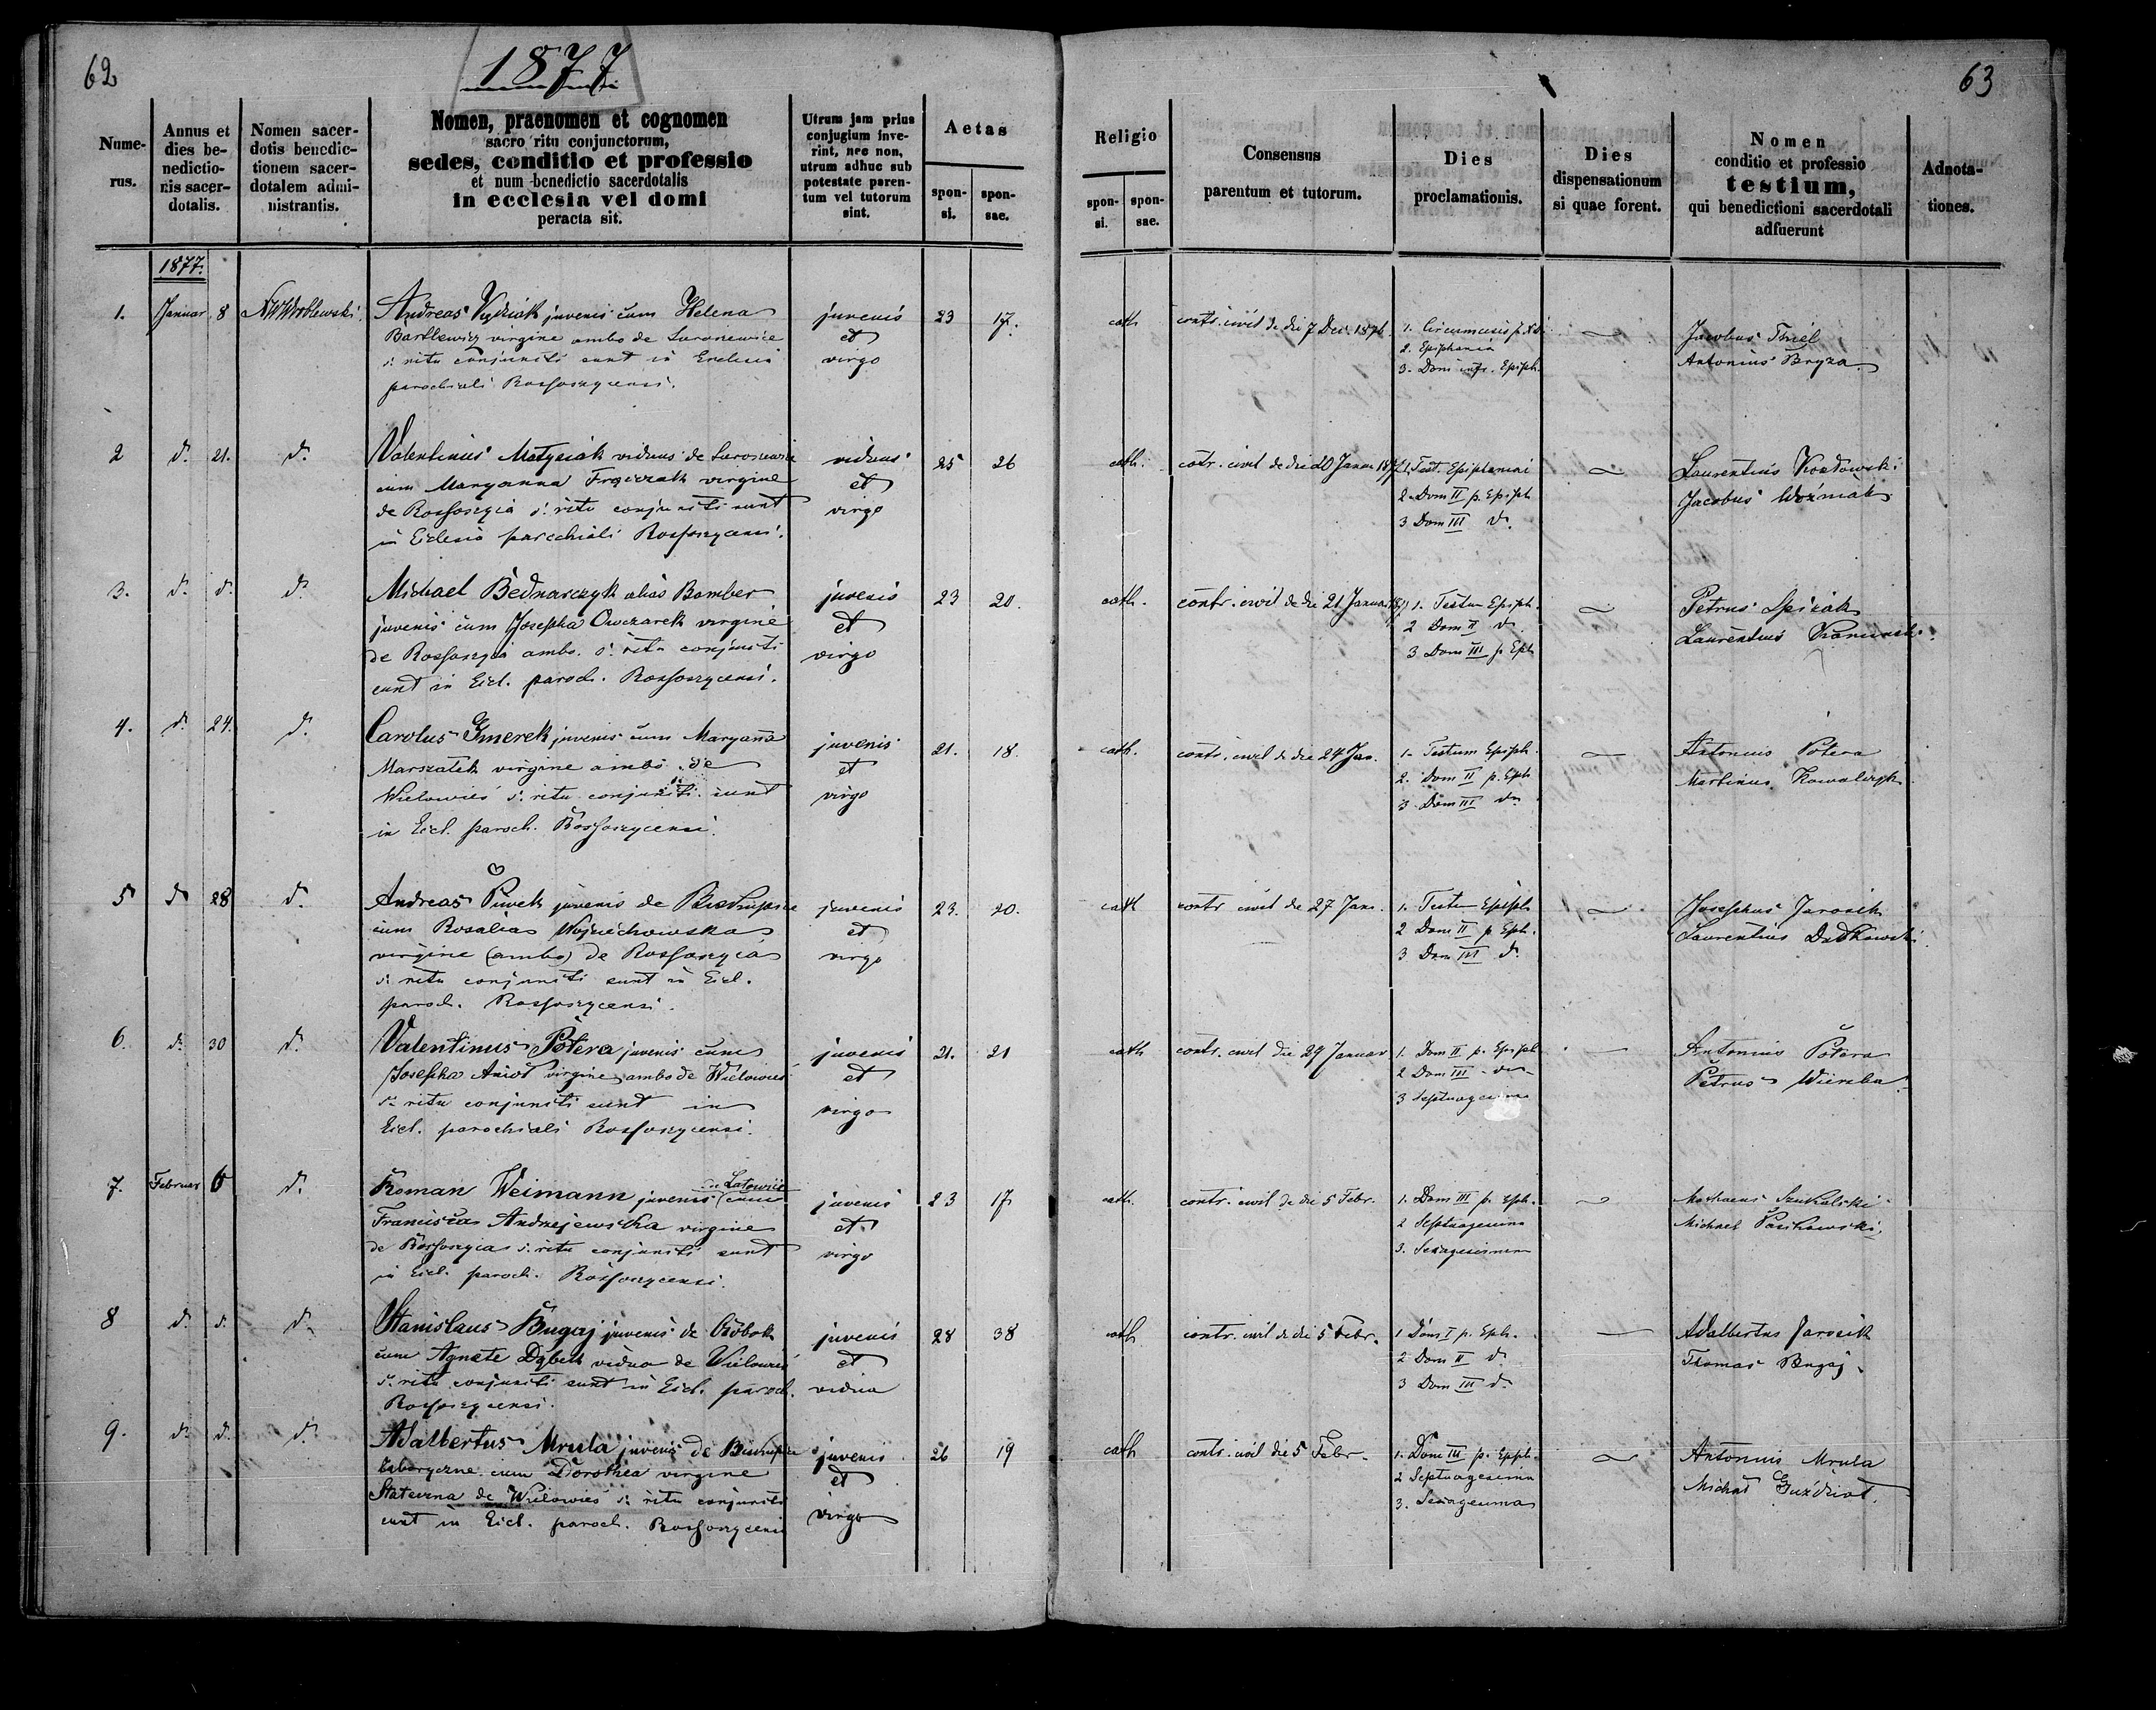 62
1877
63
Nume-
rus.
Annus et
dies be-
nedictio-
nis sacer-
dotalis.
Nomen sacer-
dotis benedic-
tionem sacer-
dotalem admi-
nistrantis.
Nomen, praenomen et cognomen
sacro ritu conjunctorum,
sedes, conditio et professio
et num benedictio sacerdotalis
in ecclesia vel domi
peracta sit.
Utrum jam prius
conjugium inve-
rint, nec non,
utrum adhuc sub
potestate paren-
tum vel tutorum
sint.
Aetas
spon-
si.
spon-
sae.
Religio
spon-
si.
spon-
sae.
Consensus
parentum et tutorum.
Dies
proclamationis.
Dies
dispensationum
si quae forent.
Nomen
conditio et professio
testium,
qui benedictioni sacerdotali
adfuerunt
Adnota-
tiones.
1877.
1. Januar 8
Andreas juvenis cum Helena
virgine ambo de
s. ritu conjuncti sunt in Ecclesia
parochiali Rossoszycensi.
juvenis
et
virgo
23 17.
cath
contr. civil de die 7 Dec. 1876.
2. Epiphania
3. Dom infr. Epiph.
Jacobus Thiel
Antonius Bryza
2 d. 21. d.
Valentinus Matysiak viduus de
cum Maryanna virgine
de Rossoszyca s. ritu conjuncti sunt
in Eclesia parochiali Rossoszycensi.
viduus
et
virgo
25 26
cath.
cotr. civil de die 20 Januar
1. Fest. Epiphaniae
2. Dom II p. Epiph
3 Dom III d.
Laurentius Kozłowski
Jacobus Woźniak
3. d. d. d.
Michael Bednarczyk alias Bamber
juvenis cum Josepha Owczarek virgine
de Rossoszyca ambo. s. ritu conjuncti
sunt in Eccl. paroch. Rossoszycensi.
juvenis
et
virgo
23 20.
cath.
contr. civil de die 21 Januar
1. Festum Epiph.
2 Dom II d.
3 Dom III p Eph
Petrus
Laurentius
4. d. 24. d.
Carolus Gmerek juvenis cum Maryana
Marszałek virgine ambo de
Wielowieś s. ritu conjuncti sunt
in Eccl. paroch. Rossoszycensi.
juvenis
et
virgo
21. 18.
cath.
contr. civil de die 24 Jan.
1. Festum Epiph.
2. Dom II p. Eph
3 Dom III d.
Antonius Potera
Martinus Kowalczyk
5 d 28 d.
Andreas juvenis de
cum Rosalia Wojciechowska
virgine (ambo) de Rossoszyca
s. ritu conjuncti sunt in Eccl.
paroch. Rossoszycensi.
juvenis
et
virgo
23. 20.
cath
contr civil de 27 Jan.
1. Festum Epiph
2 Dom II p Eph.
3 Dom III d.
Josephus Jarosik
Laurentius
6. d. 30 d.
Valentinus Potera juvenis cum
Josepha virgine ambo de Wielowieś
s. ritu conjuncti sunt in
Eccl. parochiali Rossoszycensi.
juvenis
et
virgo
21. 21
cath
contr. civil die 29 Januar
1. Dom II p. Epiph
2 Dom III d.
3 Septuagesima
Antonius Potera
Petrus Wierzba
7. Februar 6 d.
de Latowice
Roman Weimann juvenis cum
Francisca Andrzejewska virgine
de Rossoszyca s. ritu conjuncti sunt
in Eccl. paroch. Rossoszycensi.
juvenis
et
virgo
23 17
cath.
contr. civil de die 5 Febr.
1. Dom III p. Eph.
2 Septuagesima
3. Sexagesima
Szukalski
Michael
8 d. d. d.
Stanislaus Bugaj juvenis de
cum Agnete Dąbek vidua de Wielowieś
s. ritu conjuncti sunt in Eccl. paroch.
Rossoszycensi.
juvenis
et
vidua
28 38
cath
contr. civil de die 5 Febr.
1 Dom I p. Eph.
2 Dom II d.
3 Dom III d.
Adalbertus Jarosik
Thomas Bugaj
9. d. d. d.
Adalbertus Mrula juvenis de
cum Dorothea virgine
de Wielowieś s. ritu conjuncti
sunt in Eccl. paroch. Rossoszycensi
juvenis
et
virgo
26 19
cath
contr. civil die 5 Febr.
1. Dom III p. Epiph.
2 Septuagesima
3. Sexagesima
Antonius Mrula